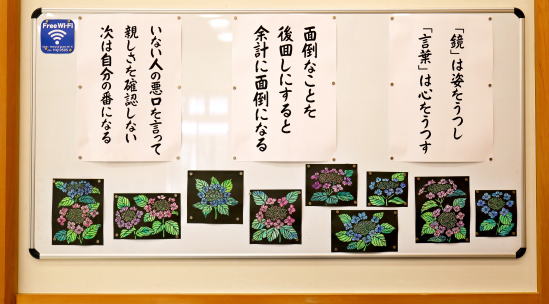 Free Wi-Fi
「鏡」は姿をうつし
「言葉」は心をうつす
面倒なことを
後回しにすると
余計に面倒になる
いない人の悪口を言って
親しさを確認しない
次は自分の番になる